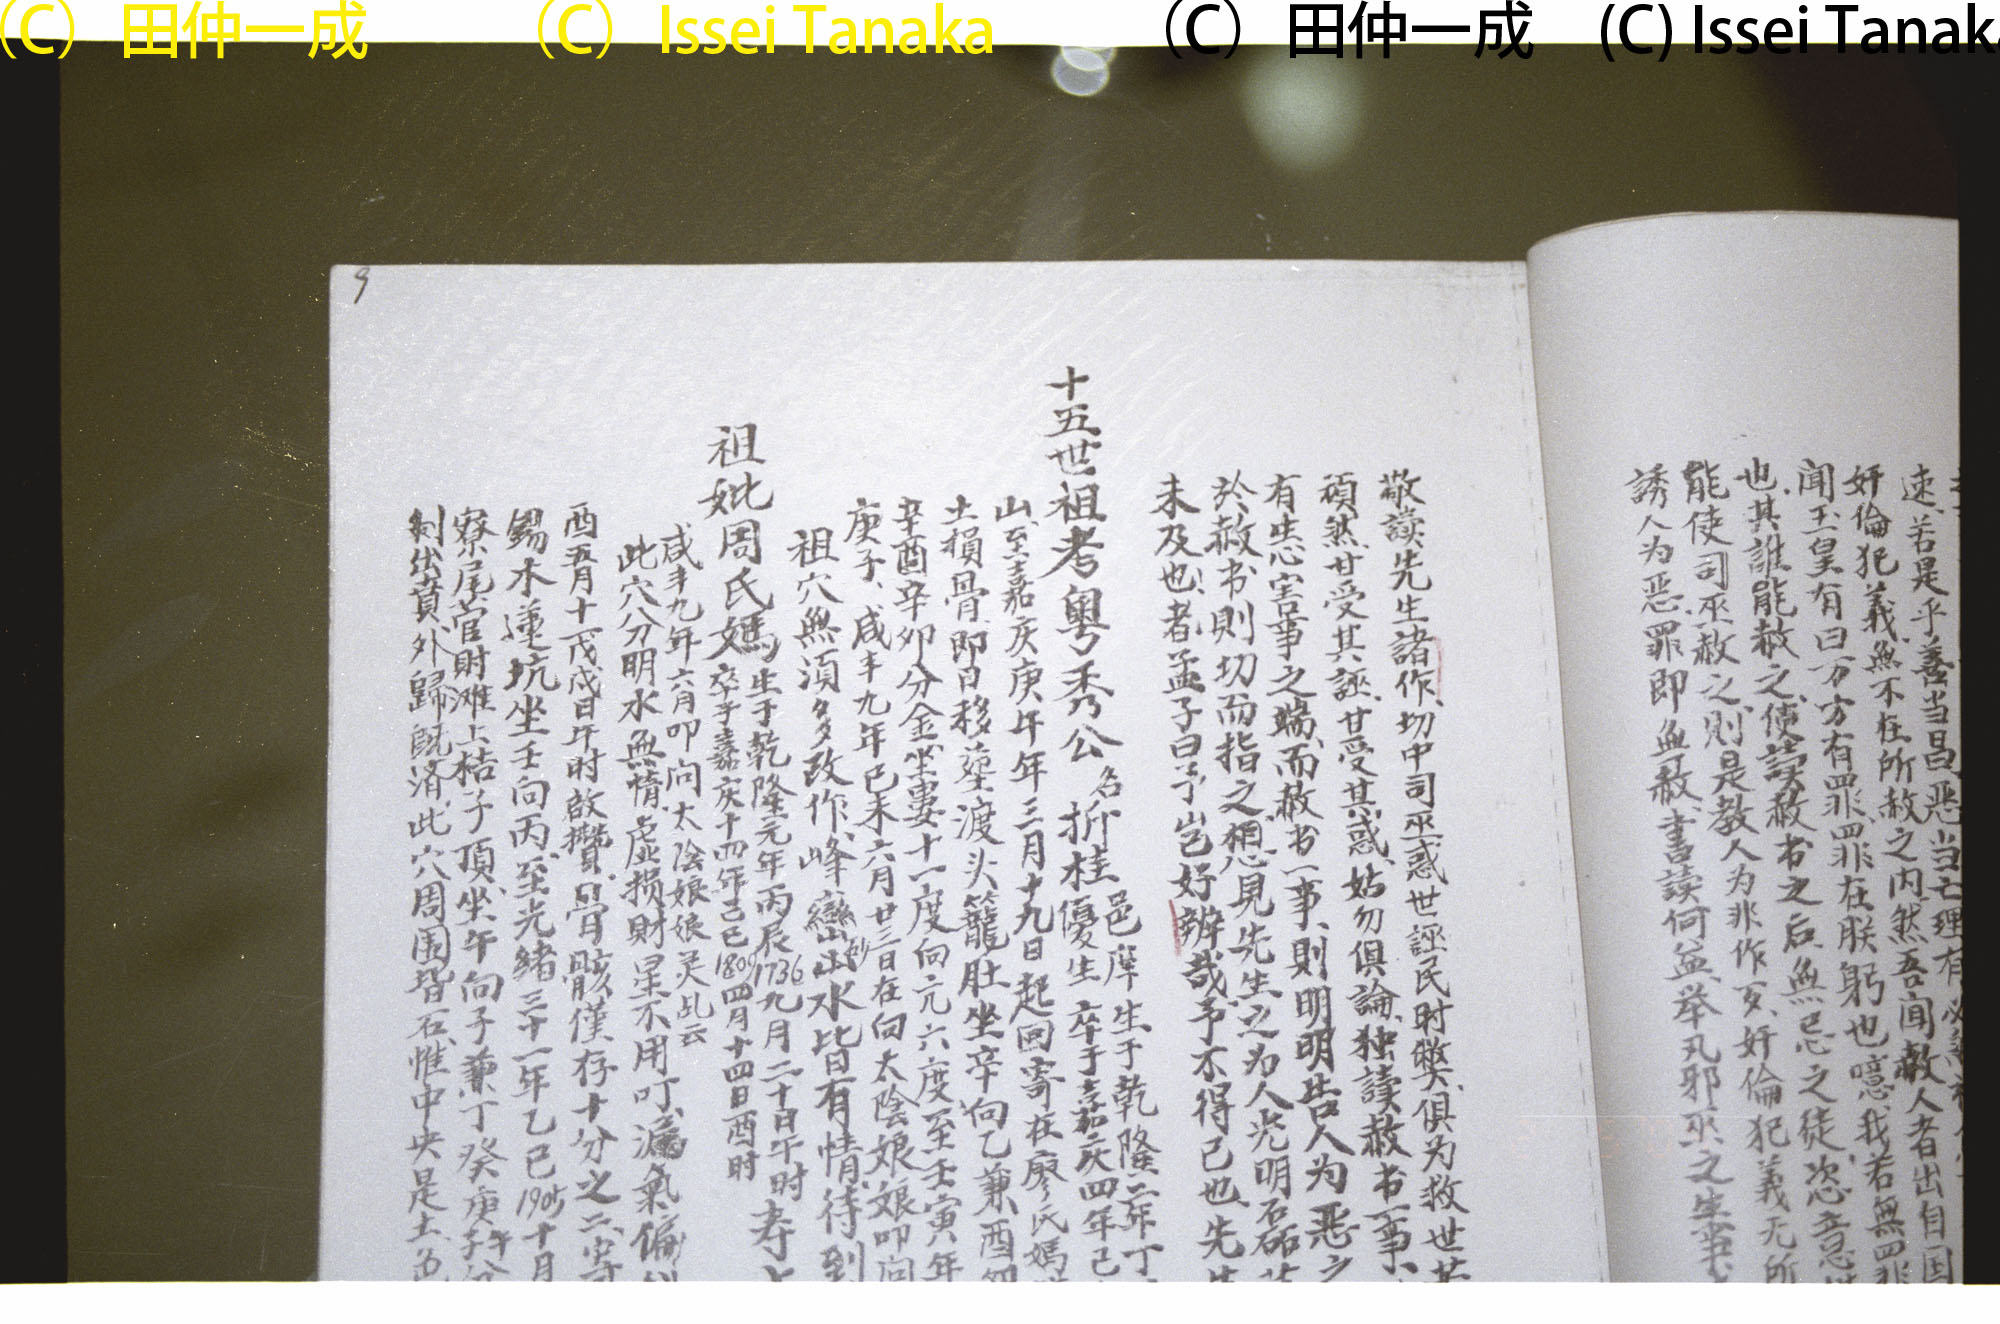 (C) 田仲一成 (C) Issei Tanaka (C) 田仲一成 (C) Issei Tanaka
速、若是乎善当昌惡当亡理有必
奸倫犯義無不在所赦之内然吾闻赦人者出自国
闻玉皇有曰万方有罪罪在朕躬也噫我若無罪
也其誰能赦之使讀赦书之后無忌之徒恣意
能使司巫赦之則是教人为非作歹奸倫犯義无所
誘人为惡罪即無赦書讀何益举凡邪巫之生事
敬讀先生諸作、切中司巫惑世誣民时弊、俱为救世
頑然甘受其誣、甘受其惑、姑勿俱論、独讀赦书一事、
有生心害事之端、而赦书一事、則明明告人为惡之
於赦书則切而指之想見先生之为人光明石磊
未及也、者孟子曰予岂好辨哉予不得已也、先生
十五世祖考粤秀公名折桂邑庠優生 生于乾隆二年丁 卒于嘉庆四年己
山、至嘉庆庚午年三月十九日起回寄在廖氏媽
土損骨即日移塟渡头籠肚坐辛向乙兼酉卯
辛酉辛卯分金坐婁十一度向亢六度至壬寅年
庚子、咸丰九年己未六月廿三日在向太陰娘娘叩问
祖穴無須多改作、峰巒出水皆有情待到
祖妣周氏媽 生于乾隆元年丙辰1736九月二十日午时 寿 卒于嘉庆十四年己巳1809四月十四日酉时
咸丰九年六月叩问太陰娘娘灵乩云
此穴分明水無情、虚损財星不用叮濿氣偏
酉五月十一戊戌日午时啟攢骨骸僅存十分之二
錫水蓮坑坐壬向丙、至光緒三十一年乙巳1905十月
寮尾菅財滩上桔子頂、坐午向子兼丁癸庚午
剝出賁外歸既済、此穴周围皆石惟中央是土色
9